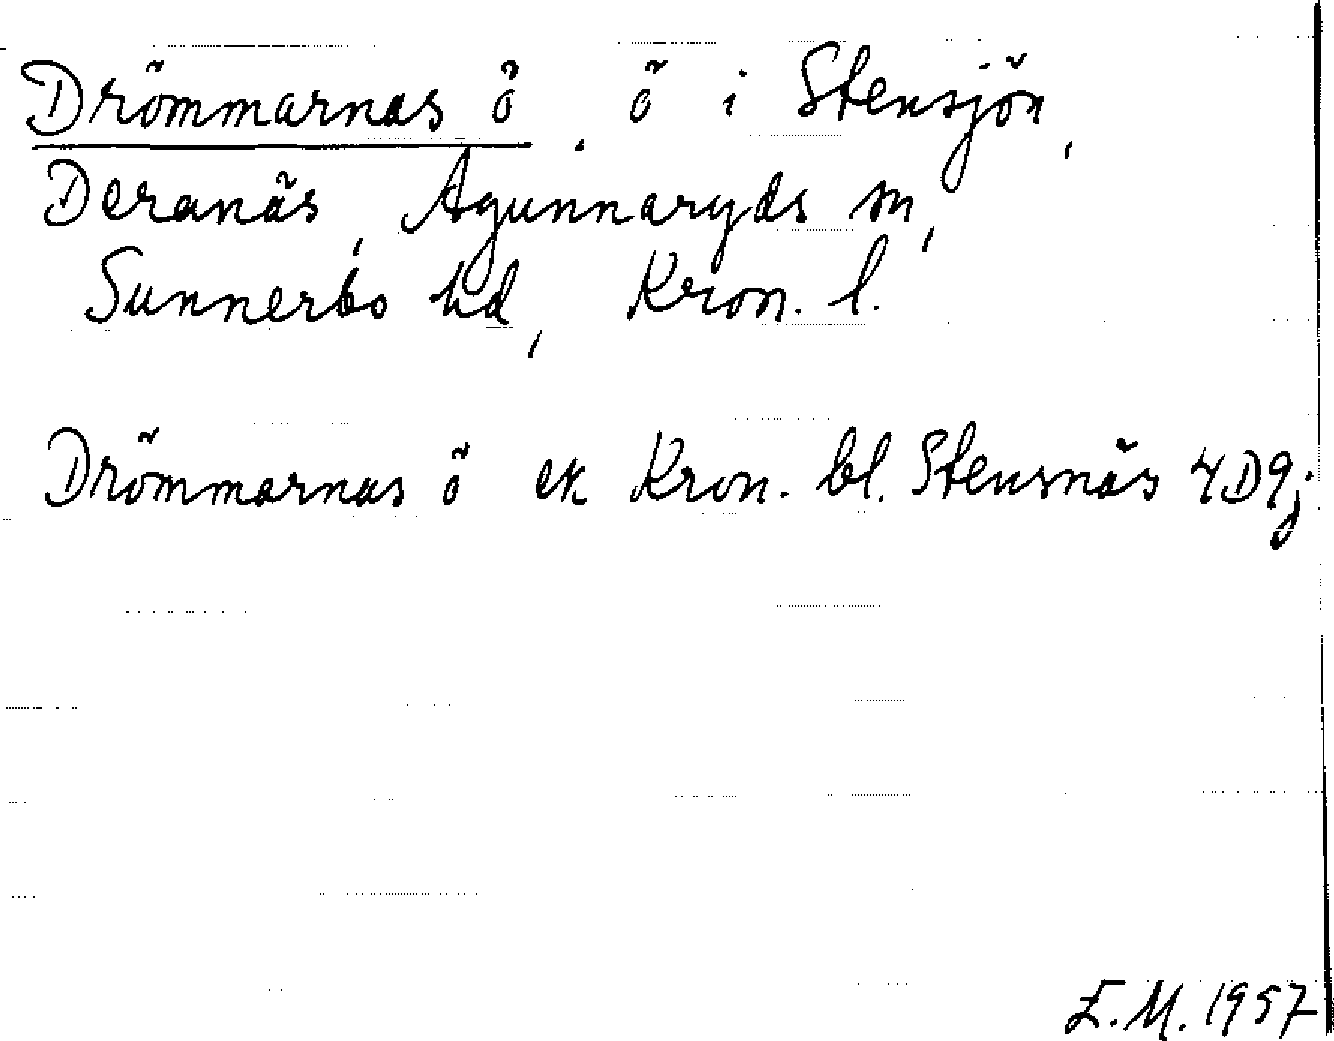 Drömmarnas ö. ö i Stensjön,
Deranäs, Agunnaryds sn,
Sunnerbo hd, Kron. l.
Drömmarnas ö ek Kron. bl. Stensnäs 4D9j
E.M. 1957